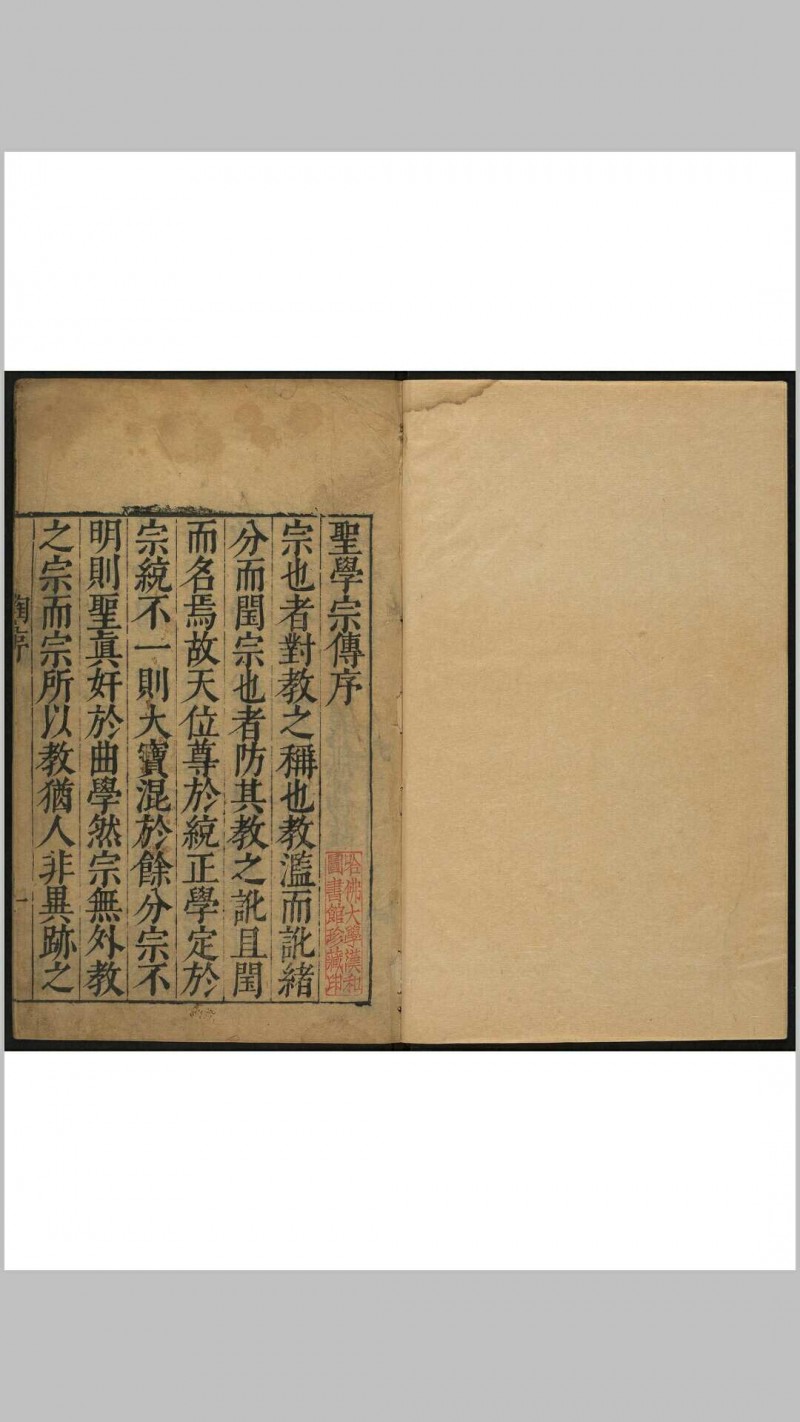 聖學宗傳序
哈佛大學漢和
圖書館珍藏印
宗也者對教之稱也教濫而訛緒
分而閏宗也者防其教之訛且閏
而名焉故天位尊於統正學定於
宗統不一則大寶混於餘分宗不
明則聖真奸於曲學然宗無外教
之宗而宗所以教猶人非異跡之
陶序
一